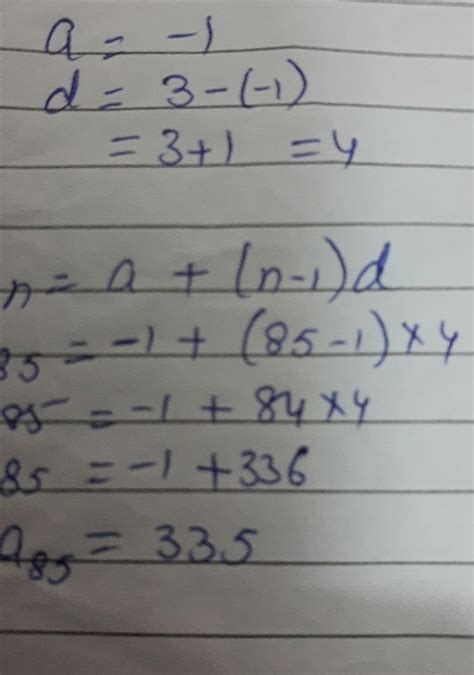 a = -1
d = 3-(-1)
= 3+1 = 4
n = a + (n-1)d
85 = -1 + (85-1)×4
85 = -1 + 84×4
85 = -1 + 336
a85 = 335